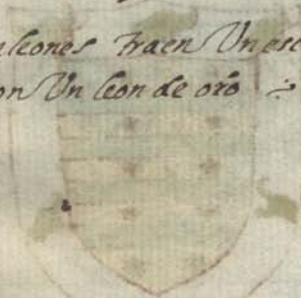 leones traen Un esc
on Un leon de oro